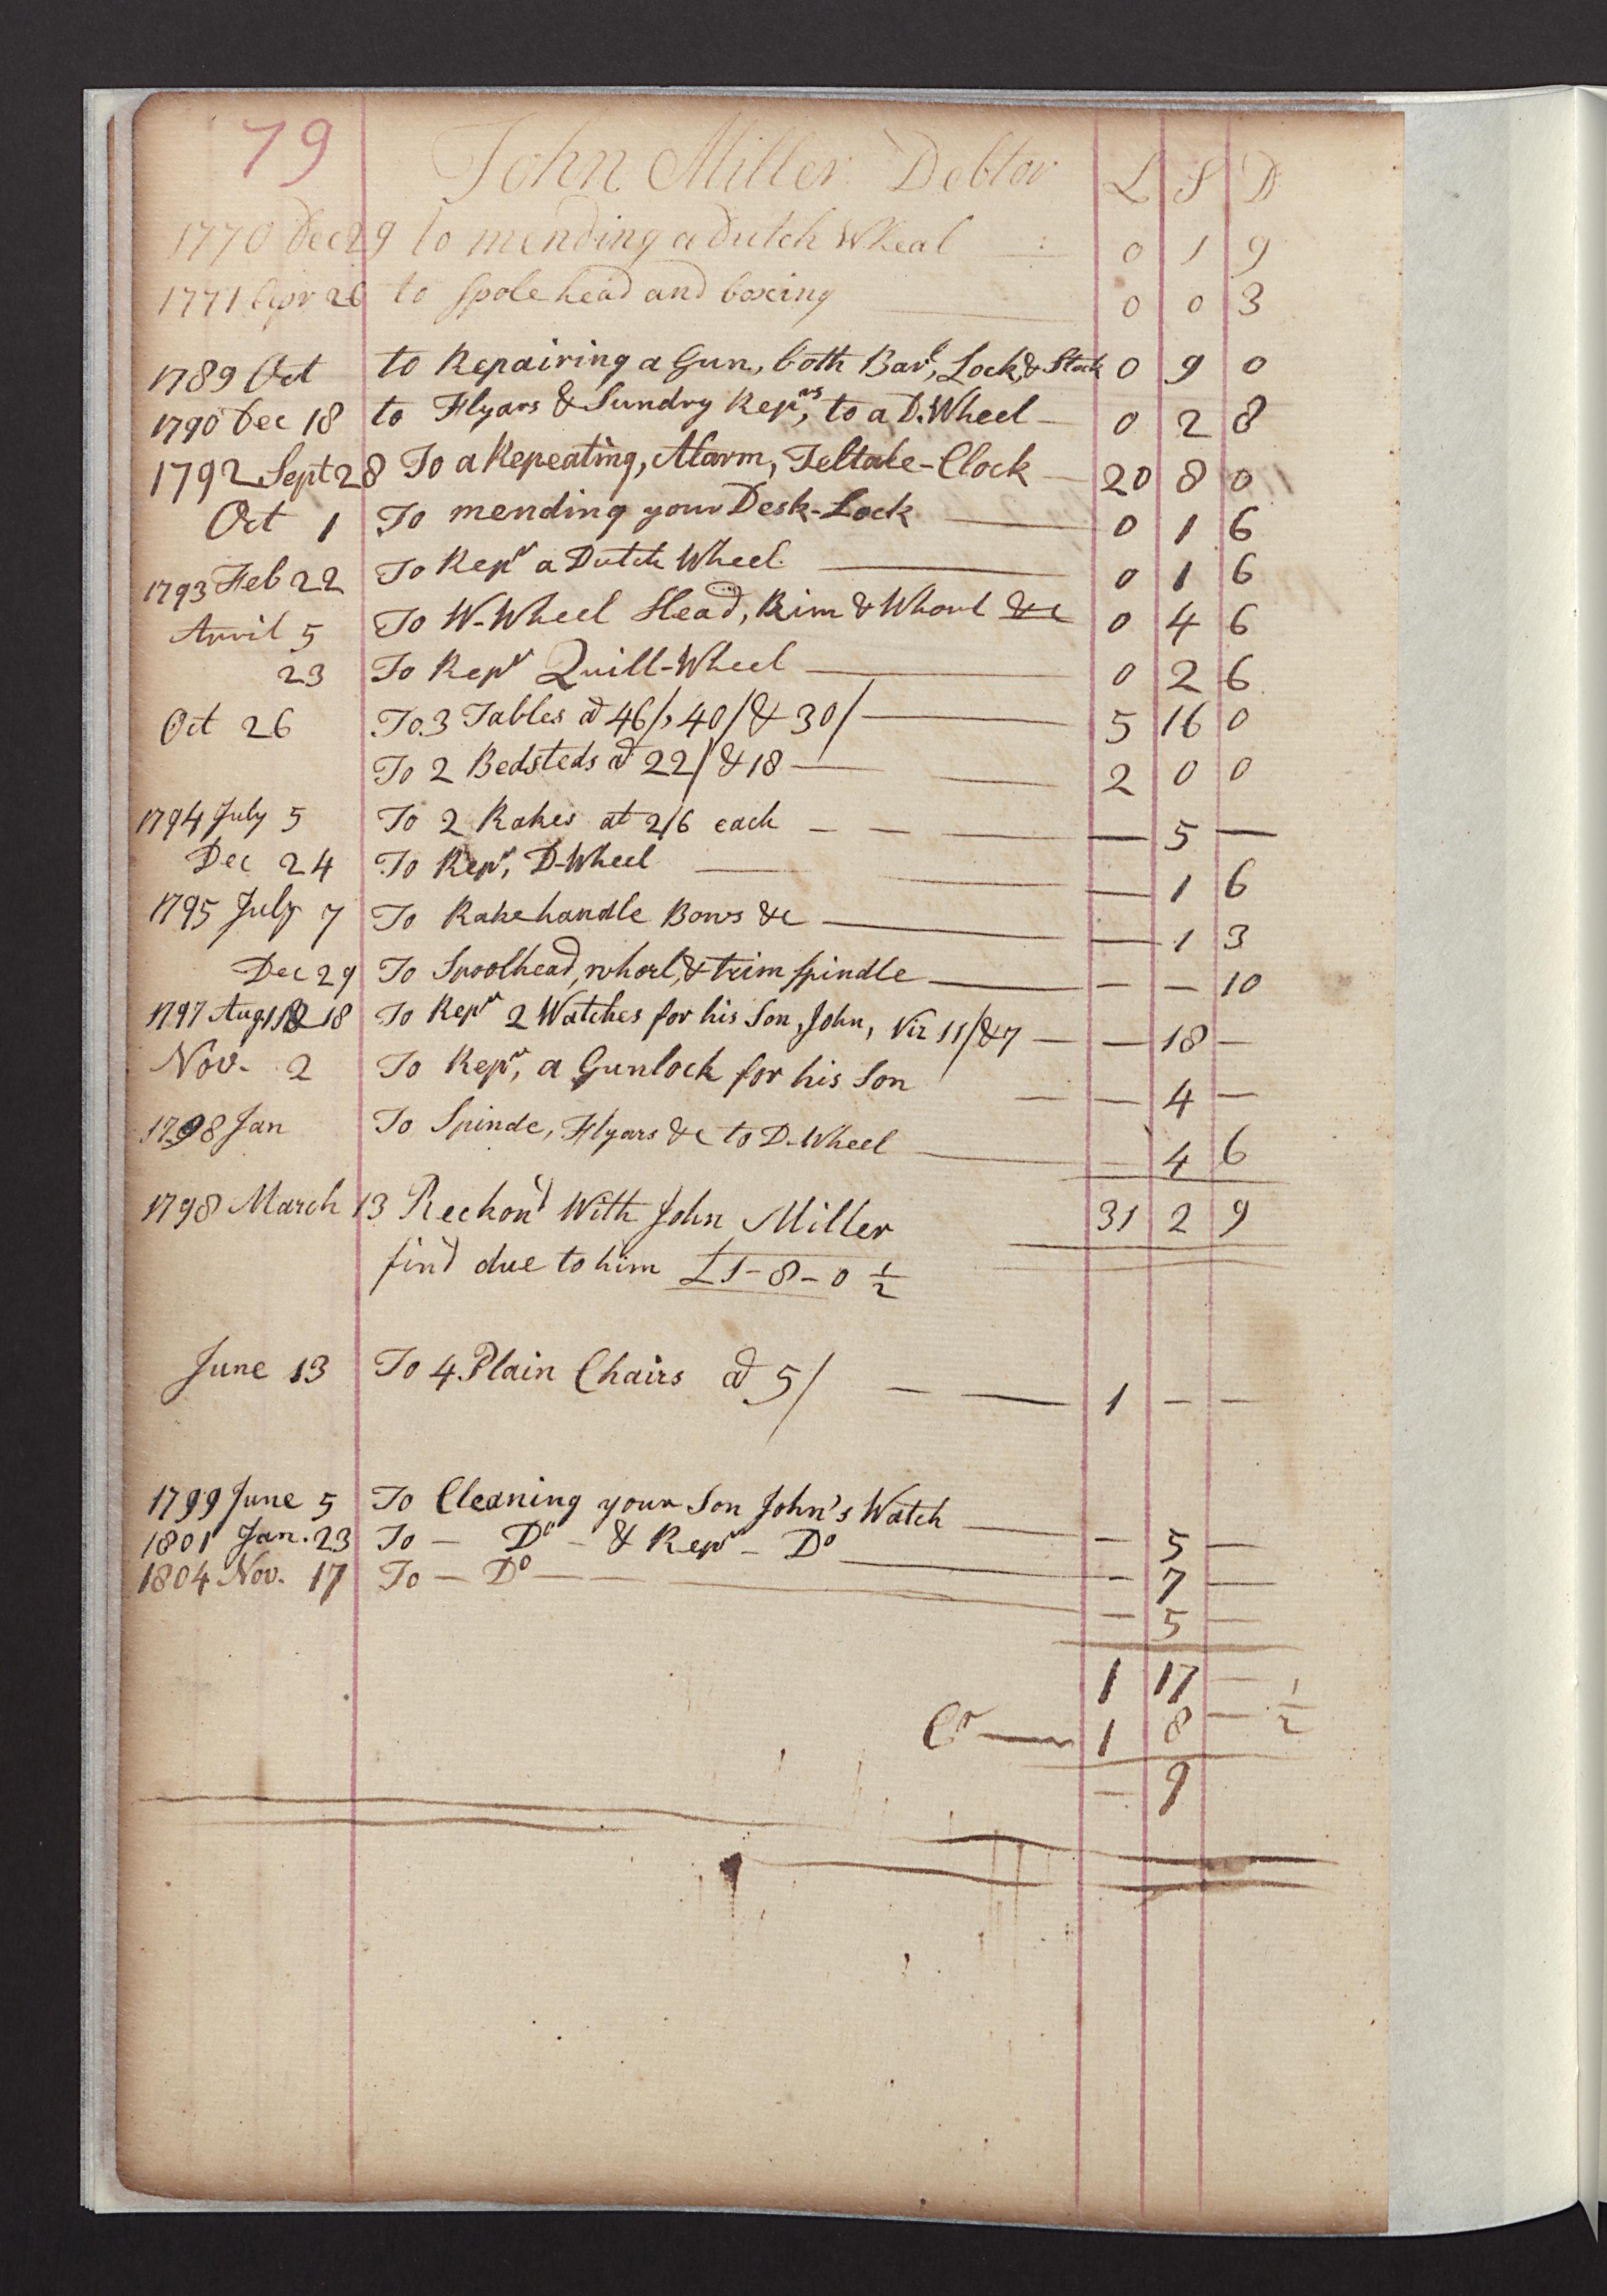 79
John Miller Debtor L S D
1770 Dec 29 to mending a Dutch Wheal 0 1 9
1771 Apr 26 to Spole head and boxing 0 0 3
1789 Oct to Repairing a Gun, both Barl, Lock, & Stock 0 9 0
1790 Dec 18 to Flyars & Sundry Reprs, to a D. Wheel — 0 2 8
1792 Sept 28 To a Repeating, Alarm, Teltale-Clock — 20 8 0
Oct 1 To mending your Desk-Lock — 0 1 6
1793 Feb 22 To Repr a Dutch Wheel — 0 1 6
April 5 To W-Wheel Head, Rim & Whorl &c 0 4 6
23 To Repr Quill-Wheel — 0 2 6
Oct 26 To 3 Tables @ 46/, 40/ & 30/ — 5 16 0
To 2 Bedsteds @ 22/ & 18 — 2 0 0
1794 July 5 To 2 Rakes at 2/6 each — — — 5 —
Dec 24 To Repr, D-Wheel — — 1 6
1795 July 7 To Rakehandle Bows &c — — 1 3
Dec 29 To Spoolhead, whorl, & trim spindle — — — 10
1797 Aug 18 To Repr 2 Watches for his Son, John, Viz 11/ & 7 — — 18 —
Nov. 2 To Repr, a Gunlock for his Son — — 4 —
1798 Jan To Spinde, Flyars &c to D-Wheel — — 4 6
1798 March 13 Reckon'd With John Miller 31 2 9
find due to him £1-8-0 1/2
June 13 To 4 Plain Chairs @ 5/ — — 1 — —
1799 June 5 To Cleaning your Son John's Watch — — 5 —
1801 Jan. 23 To — Do — & Repr — Do — — 7 —
1804 Nov. 17 To — Do — — — 5 —
1 17 —
Cr — 1 8 — 1/2
— 9